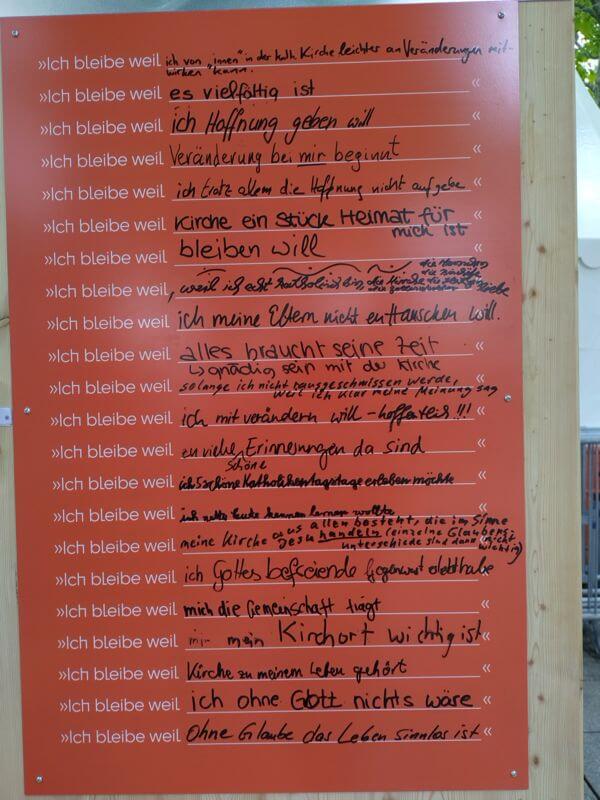 »Ich bleibe weil ich von "innen" in der kath. Kirche leichter an Veränderungen mit-
wirken kann.
»Ich bleibe weil es vielfältig ist «
»Ich bleibe weil ich Hoffnung geben will «
»Ich bleibe weil Veränderung bei mir beginnt «
»Ich bleibe weil ich trotz allem die Hoffnung nicht aufgebe «
»Ich bleibe weil Kirche ein Stück Heimat für
mich ist
»Ich bleibe weil bleiben will
»Ich bleibe weil, weil ich echt katholisch bin, die Kirche
»Ich bleibe weil ich meine Eltern nicht enttäuschen will.
»Ich bleibe weil alles braucht seine Zeit «
↳ gnädig sein mit der Kirche
»Ich bleibe weil solange ich nicht rausgeschmissen werde,
weil ich klar meine Meinung sag
»Ich bleibe weil ich mit verändern will - !!! «
»Ich bleibe weil zu viele schöne Erinnerungen da sind «
»Ich bleibe weil ich 5 schöne Katholikentagstage erleben möchte «
»Ich bleibe weil ich nette Leute kennen lernen wollte «
»Ich bleibe weil meine Kirche aus allen besteht, die im Sinne
Jesu handeln (einzelne Glaubens-
unterschiede sind dann nicht
wichtig)
»Ich bleibe weil ich Gottes befreiende Gegenwart erlebt habe «
»Ich bleibe weil mich die Gemeinschaft trägt «
»Ich bleibe weil mir mein Kirchort wichtig ist «
»Ich bleibe weil Kirche zu meinem Leben gehört «
»Ich bleibe weil ich ohne Gott nichts wäre «
»Ich bleibe weil Ohne Glaube das Leben sinnlos ist «